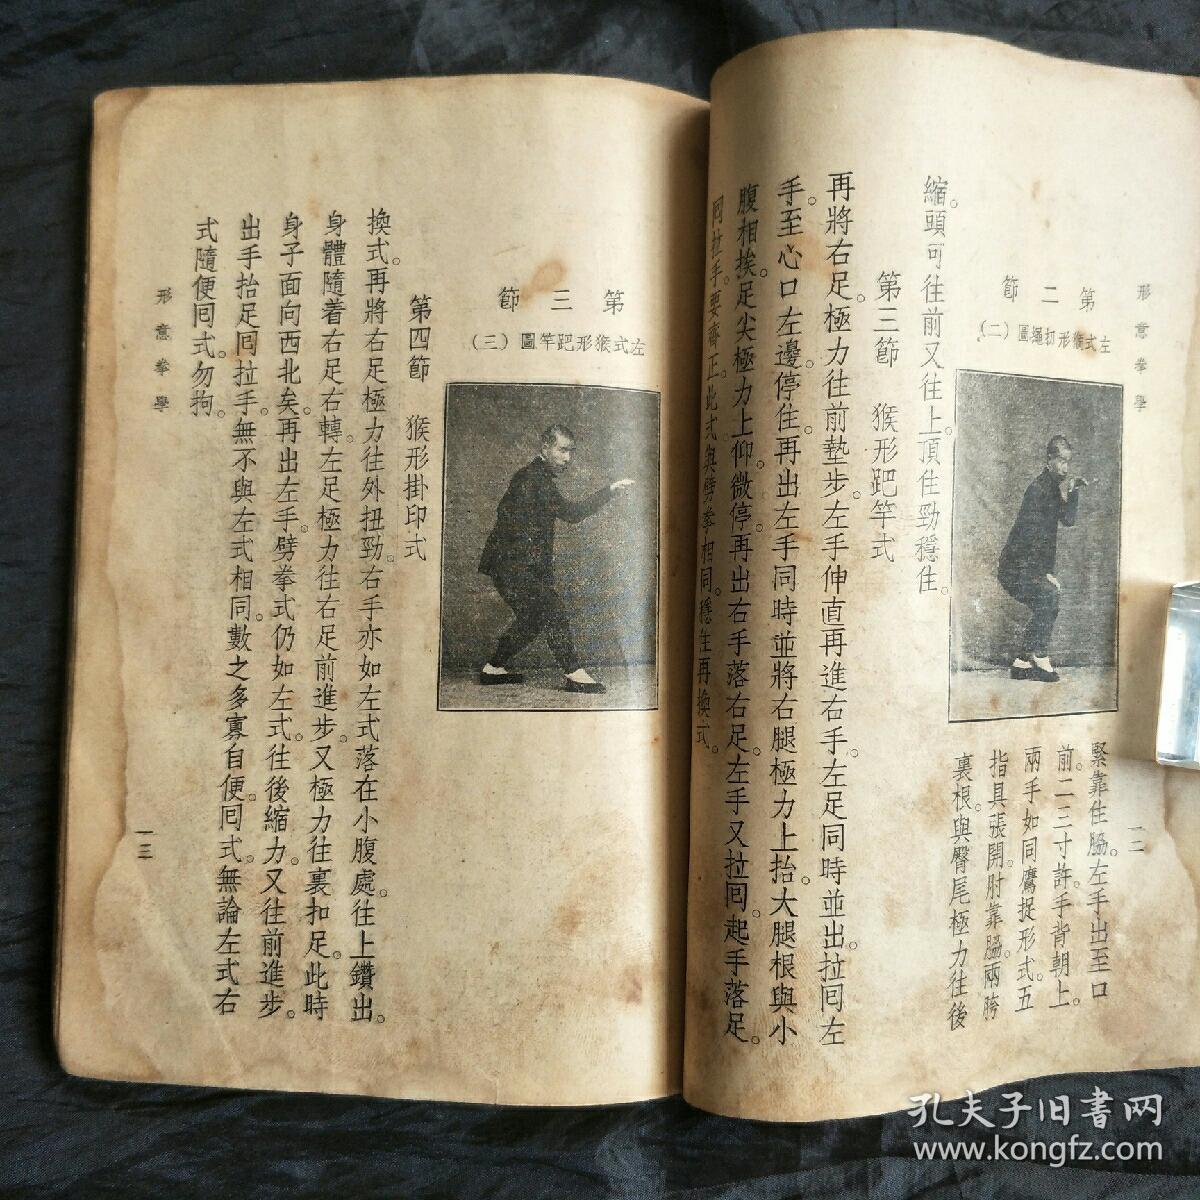 形意拳學
一二
第二節
左式猴形刼繩圖（二）
緊靠住脇。左手出至口
前。二三寸許。手背朝上。
兩手如同鷹捉形式。五
指具張開。肘靠脇。兩胯
裏根。與臀尾極力往後
縮。頭可往前又往上頂住勁。穩住。
第三節　猴形跁竿式
再將右足。極力往前墊步。左手伸直。再進右手。左足同時並出。拉囘左
手。至心口左邊。停住。再出左手。同時並將右腿極力上抬。大腿根與小
腹相挨。足尖極力上仰。微停。再出右手。落右足。左手又拉囘。起手落足。
囘拉手。要齊正。此式與劈拳相同。穩住再換式。
第三節
左式猴形跁竿圖（三）
第四節　猴形掛印式
換式。再將右足極力往外扭勁。右手亦如左式。落在小腹處。往上鑽出。
身體隨着右足右轉。左足極力往右足前進步。又極力往裏扣足。此時
身子面向西北矣。再出左手。劈拳式仍如左式。往後縮力。又往前進步。
出手抬足囘拉手。無不與左式相同。數之多寡自便。囘式。無論左式右
式隨便囘式。勿拘。
形意拳學
一三
孔夫子旧书网
www.kongfz.com